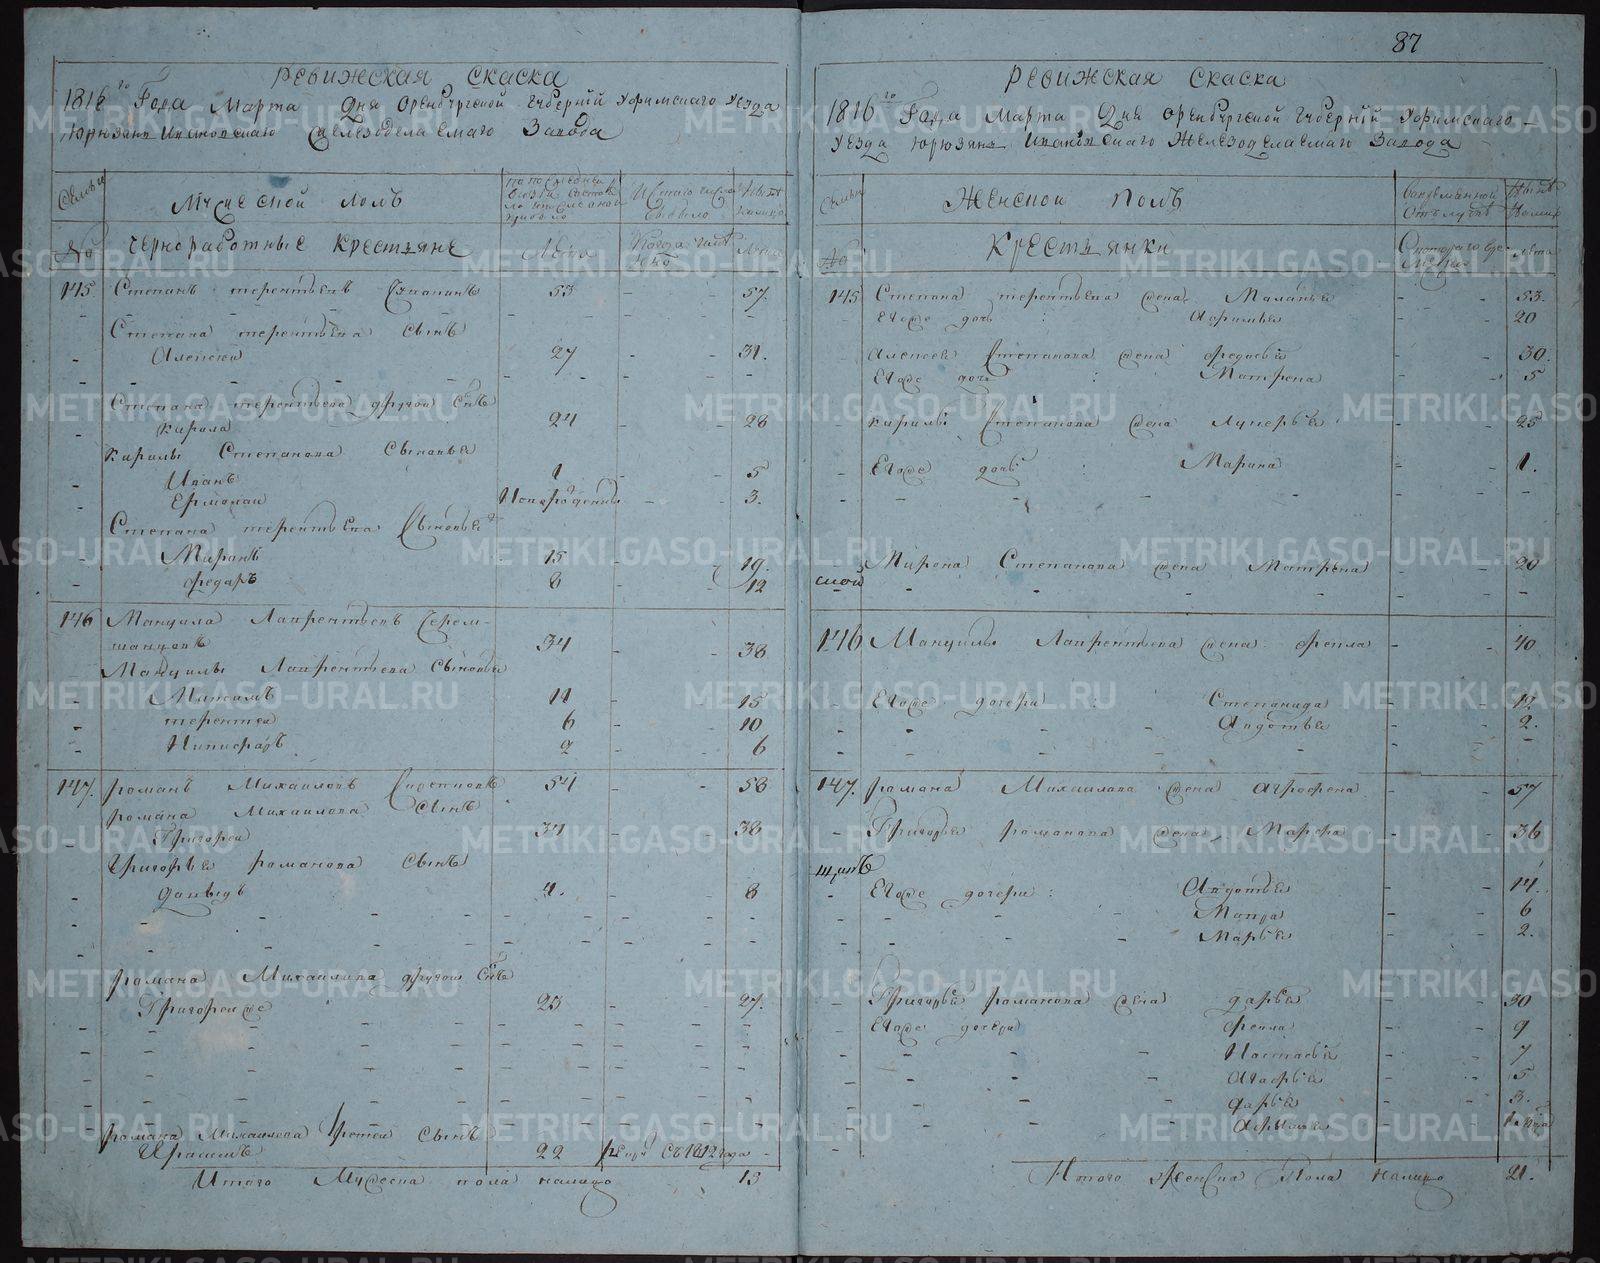 87
Ревижская скаска
1816 го Года Марта Дня Оренбургской Губернии Уфимскаго Уезда
Юрюзань Ивановскаго Железоделаемаго Завода
Семьи
Мужеской полъ
№
Чернорабочные Крестьяне
Лета
Лета
145 Степанъ Терентьевъ 53 57.
Степана Терентьева Сынъ
Алексей 27 31.
Степана Терентьева другой Сынъ
Кирила 24 28
Кирилы Степанова Сыновья
Иванъ 1 5
Ермолаи Новорожденны 3.
Степана Терентьева Сыновья
Миронъ 15 19.
Федаръ 8 12
146 Мануила Лаврентьевъ
34 38
Мануилы Лаврентьева Сыновья
Максимъ 11 15
Терентеи 6 10
Никифоръ 2 6
147. Романъ Михаиловъ 54 58
Романа Михаилова Сынъ
Григореи 34 38
Григорья Романова Сынъ
Давыдъ 4. 8
Романа Михаилова другои Сынъ
Григореи же 23 27.
Романа Михаилова Третеи Сынъ
22 Съ 1812 года
Итого Мужеска пола налицо 13
Ревижская скаска
1816 го Года Марта Дня Оренбургской Губернии Уфимскаго
Уезда Юрюзань Ивановскаго Железоделаемаго Завода
Семьи
Женской полъ
Во временной отлучке
Ныне налицо
№
Крестьянки
Лета
145 Степана Терентьева жена Маланья 53.
Егоже дочь : Афимья 20
Алексея Степанова жена Федосья 30.
Егоже дочь : Матрена 5
Кирилы Степанова жена Лукерья 25
Егоже дочь : Марина 1.
Мирона Степанова жена Матрена 20
146 Мануилы Лаврентьева жена Фекла 40
Егоже дочери : Степанида 12
Авдотья 2.
147. Романа Михаилова жена Агрофена 57
Григорья Романова жена Марфа 36
Егоже дочери : Авдотья 14.
Мавра 6
Марья 2.
Григорья Романова жена Дарья 30
Егоже дочери Фекла 9
Настасья 7
Агафья 5
Дарья 3.
Афимья
Итого Женска Пола налицо 21.
METRIKI.GASO-URAL.RU